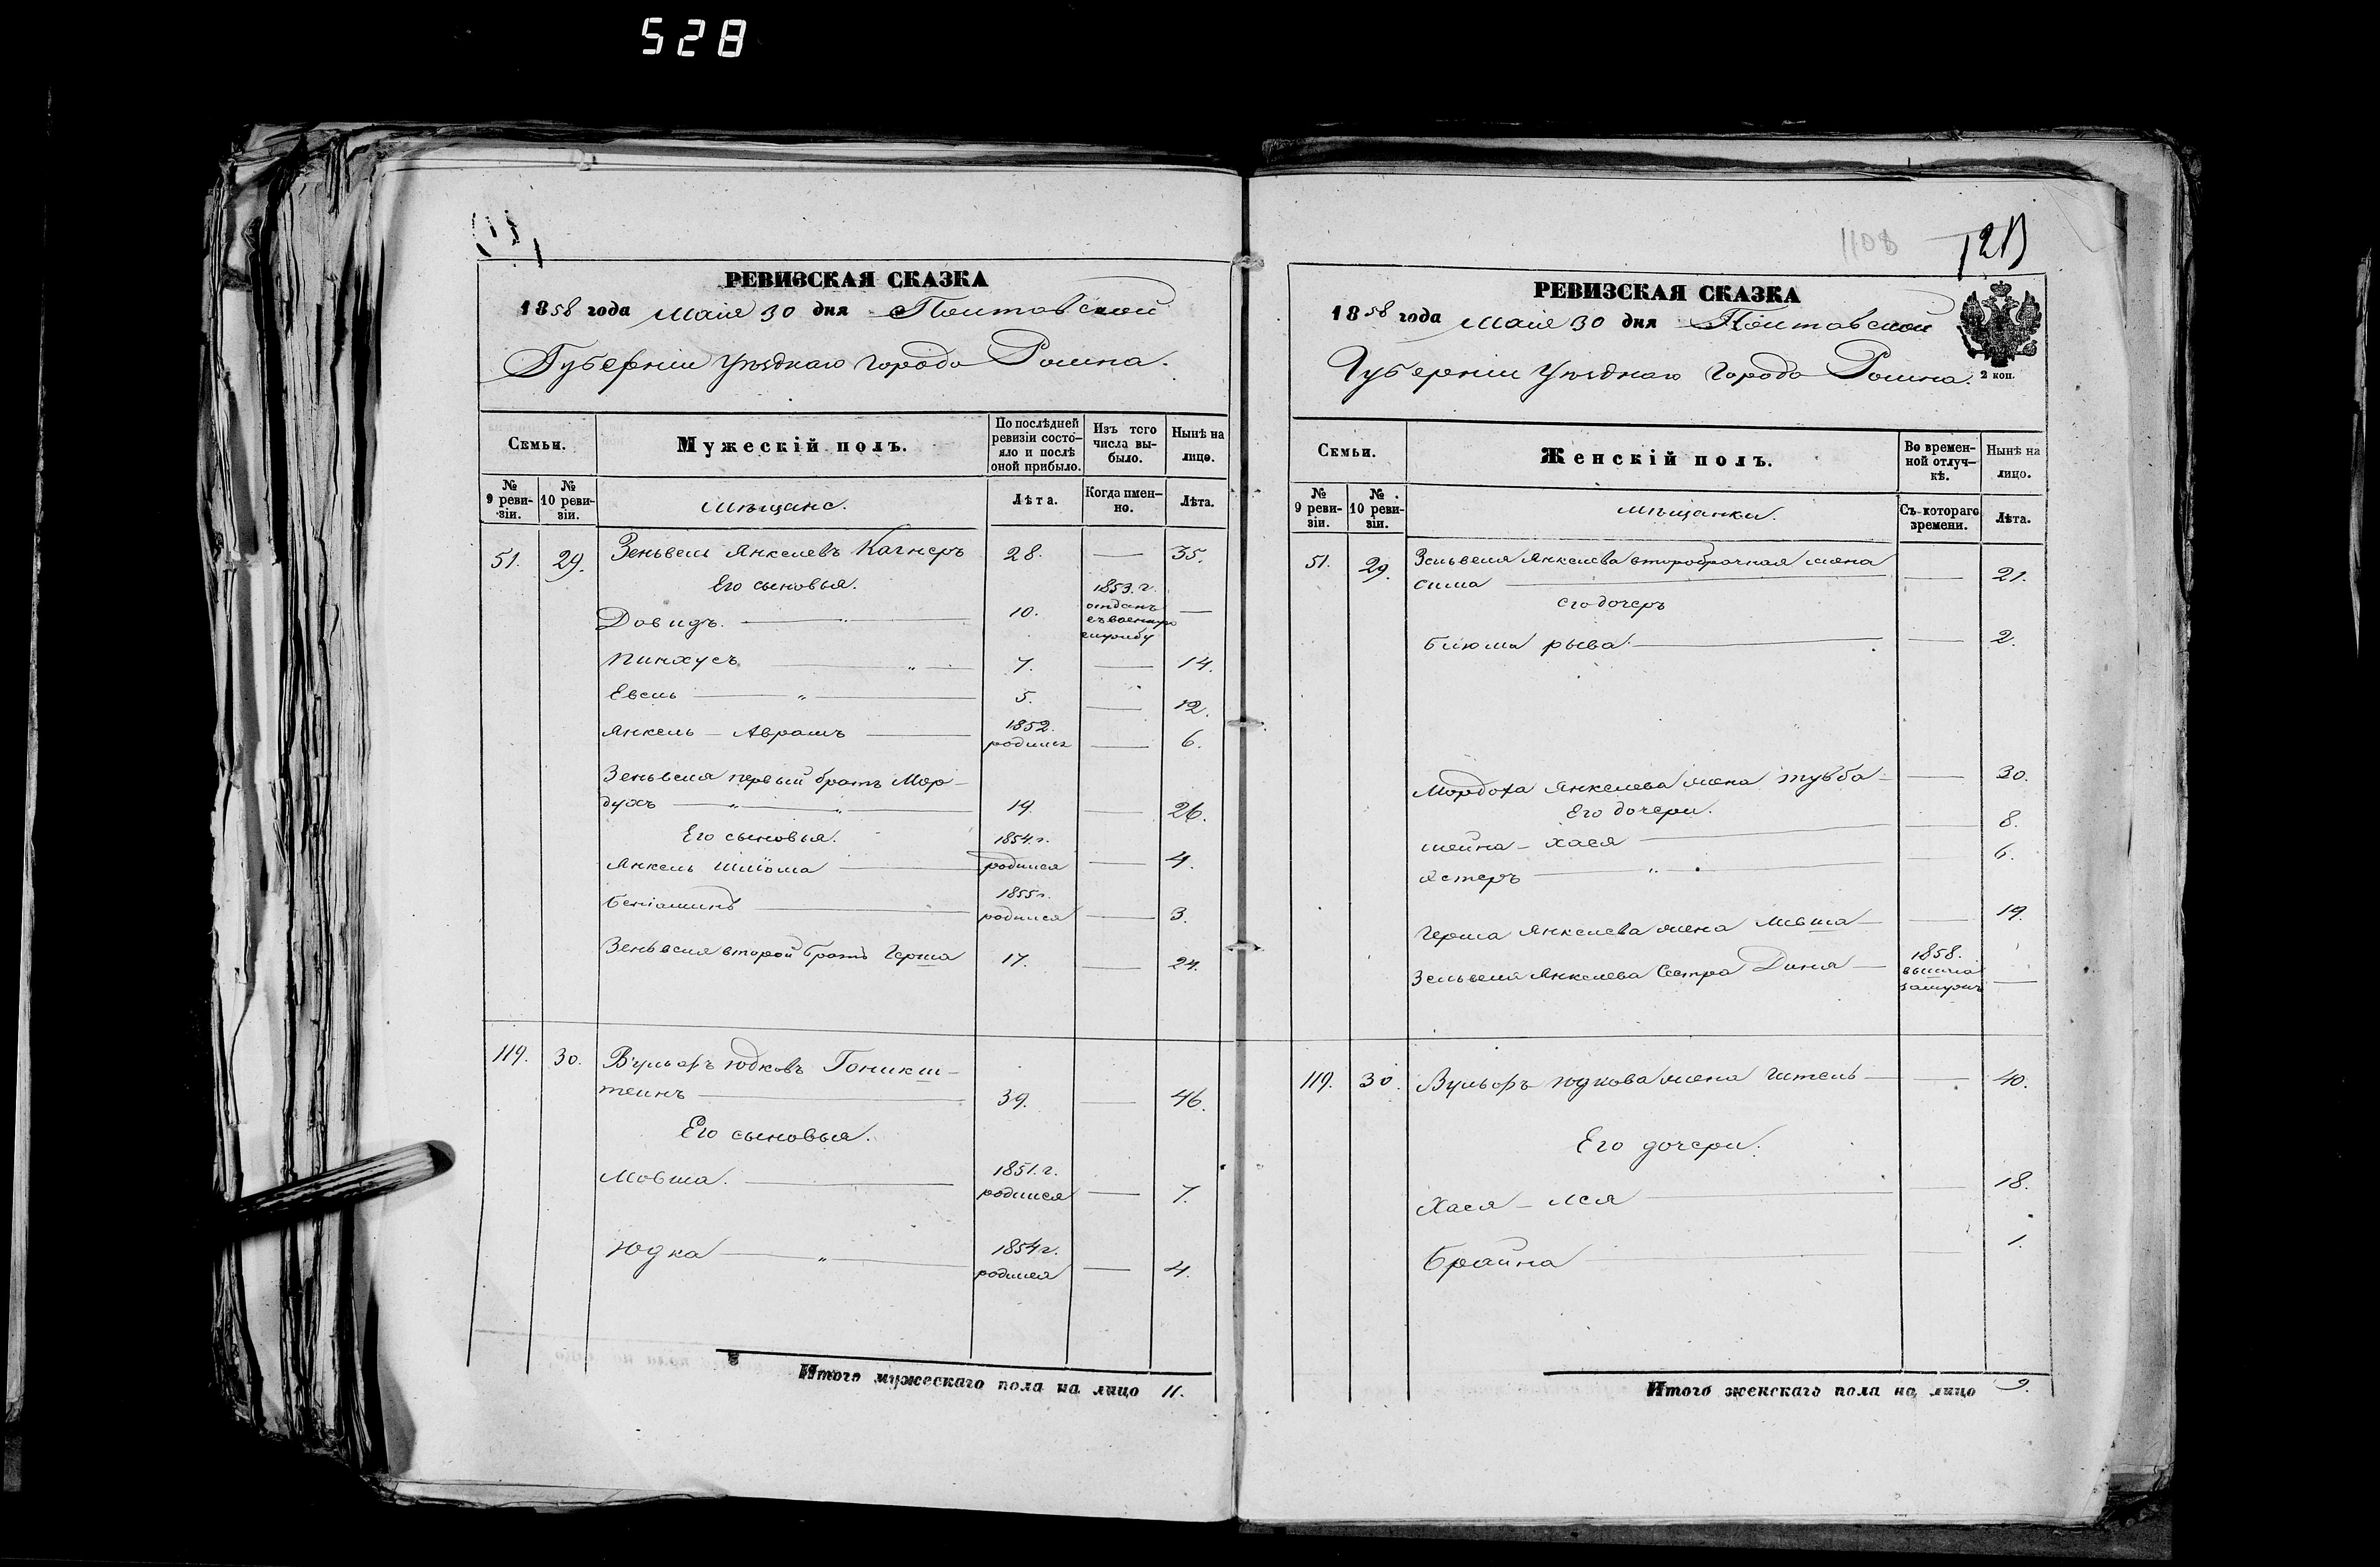 528
РЕВИЗСКАЯ СКАЗКА
1858 года Мая 30 дня Полтавской
Губерніи Уѣзднаго Города Ромна.
Семьи.
Мужескій полъ.
По послѣдней ревизіи состояло и послѣ оной прибыло.
Изъ того числа выбыло.
Нынѣ на лицо.
№ 9 ревизіи.
№ 10 ревизіи.
Мѣщане.
Лѣта.
Когда именно.
Лѣта.
51. 29. Зеньвель Янкелевъ Кагнеръ 28. — 35.
Его сыновья.
Довидъ. — „ — 10. 1853. г. отданъ въ военную службу —
Пинхусъ — „ — 7. — 14.
Евель — „ — 5. — 12.
Янкель – Аврамъ — 1852. родился — 6.
Зеньвеля первый братъ Мор-
духъ — „ — „ — 19. — 26.
Его сыновья.
Янкель Шліома — 1854. г. родился — 4.
Беніаминъ — 1855 г. родился — 3.
Зеньвеля второй братъ Герша 17. — 24.
119. 30. Вульфъ Юдковъ Гоникш-
тейнъ — 39. — 46.
Его сыновья.
Мовша. — 1851. г. родился — 7.
Юдка — „ — 1854 г. родился — 4.
Итого мужескаго пола на лицо 11.
1108
РЕВИЗСКАЯ СКАЗКА
1858 года Мая 30 дня Полтавской
Губерніи Уѣзднаго Города Ромна.
2 коп.
Семьи.
Женскій полъ.
Во временной отлучкѣ.
Нынѣ на лицо.
№ 9 ревизіи.
№ 10 ревизіи.
Мѣщанки.
Съ котораго времени.
Лѣта.
51. 29. Зеньвеля Янкелева второбрачная жена
Сима — — 21.
его дочерь
Блюма рыва. — — 2.
Мордоха Янкелева жена Тувба — — 30.
Его дочери.
Шейна – Хася — — 8.
Эстеръ — „ — — 6.
Герша Янкелева жена — — 19.
Зеньвеля Янкелева Сестра Диня — 1858. вышла замужъ —
119. 30. Вульфъ Юдкова жена Гитель — — 40.
Его дочери.
Хася – Лея — — 18.
Брайна — — 1.
Итого женскаго пола на лицо 9.